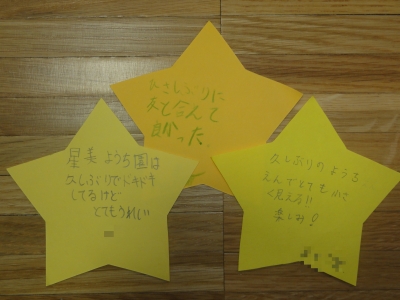 久さしぶりに
友と会えて
良かった。
星美ようち園は
久しぶりでドキドキ
してるけど
とてもうれしい
久しぶりのようち
えんでとても
く見える!!
楽しみ!